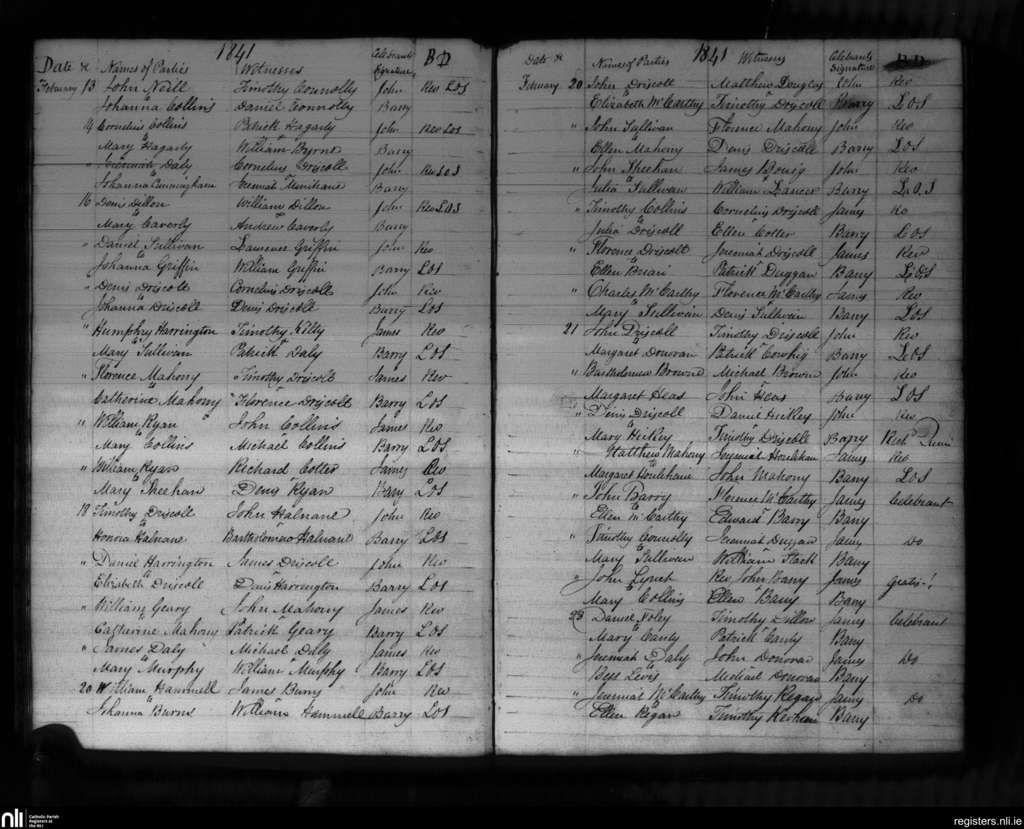 1841
Date & Names of Parties Witnesses Celebrants Signature B D
February 13 John Neill Timothy Connolly John Rev LOS
Johanna Collins Daniel Connolly Barry
14 Cornelius Collins Patrick Hagarty John Rev LOS
Mary Hagarty William Byrne Barry
" Jeremiah Daly Cornelius Driscoll John Rev LOS
Johanna Cunningham Jeremiah Barry
16 Denis Dillon William Dillon John Rev LOS
Mary Caverly Andrew Caverly Barry
" Daniel Sullivan Laurence Griffin John Rev
Johanna Griffin William Griffin Barry LOS
" Denis Driscoll Cornelius Driscoll John Rev
Johanna Driscoll Denis Driscoll Barry LOS
" Humphry Harrington Timothy James Rev
Mary Sullivan Patrick Daly Barry LOS
" Florence Mahony Timothy Driscoll James Rev
Catherine Mahony Florence Driscoll Barry LOS
" William Ryan John Collins James Rev
Mary Collins Michael Collins Barry LOS
" William Ryan Richard Cotter James Rev
Mary Sheehan Denis Ryan Barry LOS
18 Timothy Driscoll John Halnane John Rev
Honora Halnane Bartholomew Halnane Barry LOS
" Daniel Harrington James Driscoll John Rev
Elizabeth Driscoll Denis Harrington Barry LOS
" William Geary John Mahony James Rev
Catherine Mahony Patrick Geary Barry LOS
" James Daly Michael Daly James Rev
Mary Murphy William Murphy Barry LOS
20 William Hammell James Barry John Rev
Johanna Burns William Hammell Barry LOS
1841
Date & Names of Parties Witnesses Celebrants Signature B D
February 20 John Driscoll Matthew John Rev
Elizabeth McCarthy Timothy Driscoll Barry LOS
" John Sullivan Florence Mahony John Rev
Ellen Mahony Denis Driscoll Barry LOS
" John Sheehan James John Rev
Julia Sullivan William Barry LOS
" Timothy Collins Cornelius Driscoll James Rev
Julia Driscoll Ellen Cotter Barry LOS
" Florence Driscoll Jeremiah Driscoll James Rev
Ellen Brian Patrick Duggan Barry LOS
" Charles McCarthy Florence McCarthy James Rev
Mary Sullivan Denis Sullivan Barry LOS
21 John Driscoll Timothy Driscoll John Rev
Margaret Donovan Patrick Cowhig Barry LOS
" Bartholomew Brown Michael Brown John Rev
Margaret Heas John Heas Barry LOS
" Denis Driscoll Daniel Hickey John Rev
Mary Hickey Timothy Driscoll Barry
" Matthew Mahony Jeremiah Hourihan James Rev
Margaret Hourihane John Mahony Barry LOS
" John Barry Florence McCarthy James Celebrant
Ellen McCarthy Edward Barry Barry
" Timothy Connolly Jeremiah Duggan James Do
Mary Sullivan William Barry
" John Rev John Barry James Gratis-!
Mary Collins Ellen Barry Barry
23 Daniel Foley Timothy Dillon James Celebrant
Mary Canty Patrick Canty Barry
" Jeremiah Daly John Donovan James Do
Bess Lewis Michael Donovan Barry
" Jeremiah McCarthy Timothy Regan James Do
Ellen Regan Timothy Barry
nli Catholic Parish Registers at the NLI
registers.nli.ie